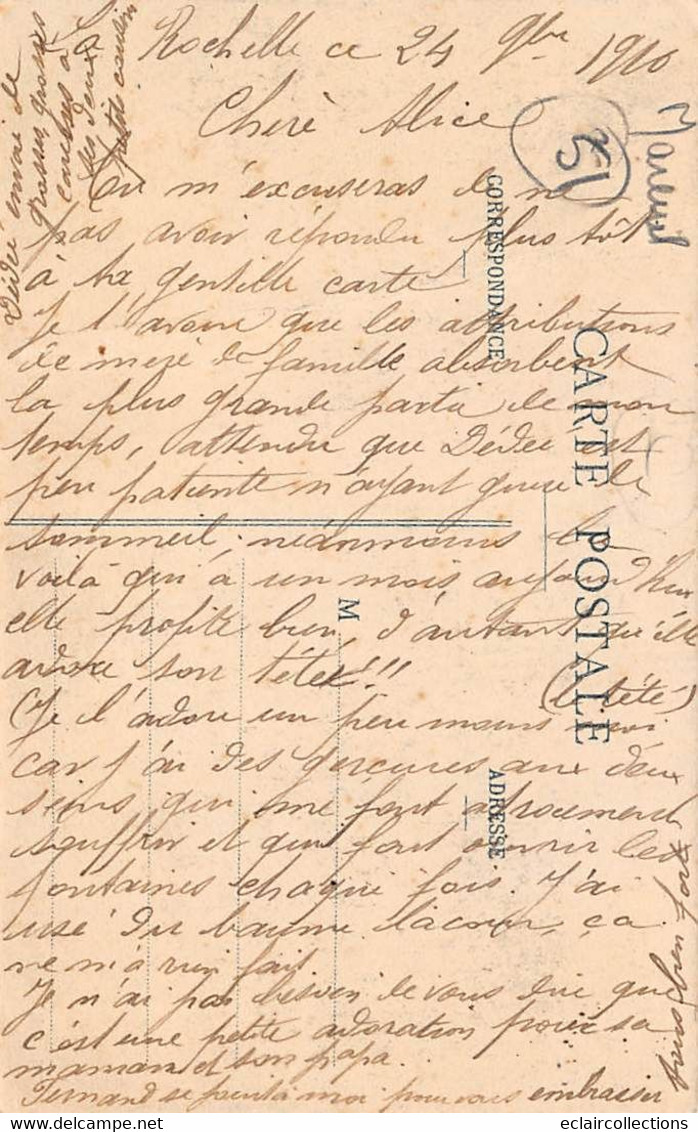 La Rochelle ce 24 9bre 1910
Chère Alice
Tu m'excuseras de ne
pas avoir répondu plus tôt
à ta gentille carte
Je t'avoue que les attributions
de mère de famille absorbent
la plus grande partie de mon
temps, attendu que Dédée est
peu patiente n'ayant guère de
sommeil, néanmoins
voilà qui a un mois aujourd'hui
elle profite bien, d'autant qu'elle
adore son tété!!!
(le tété)
(Je l'adore un peu moins moi
car j'ai des gerçures aux deux
seins qui me font atrocement
souffrir et qui font ouvrir les
fontaines chaque fois. J'ai
usé du baume Lacour, ça
ne m'a rien fait
Je n'ai pas besoin de vous dire que
c'est une petite adoration pour sa
maman et son papa.
Fernand se joint à moi pour vous embrasser
tous bien fort
Dédée envoie de
grosses, grosses
caresses à
ses deux
petits cousins
51
Mareuil
CORRESPONDANCE
CARTE POSTALE
M
ADRESSE
eclaircollections@gmail.com